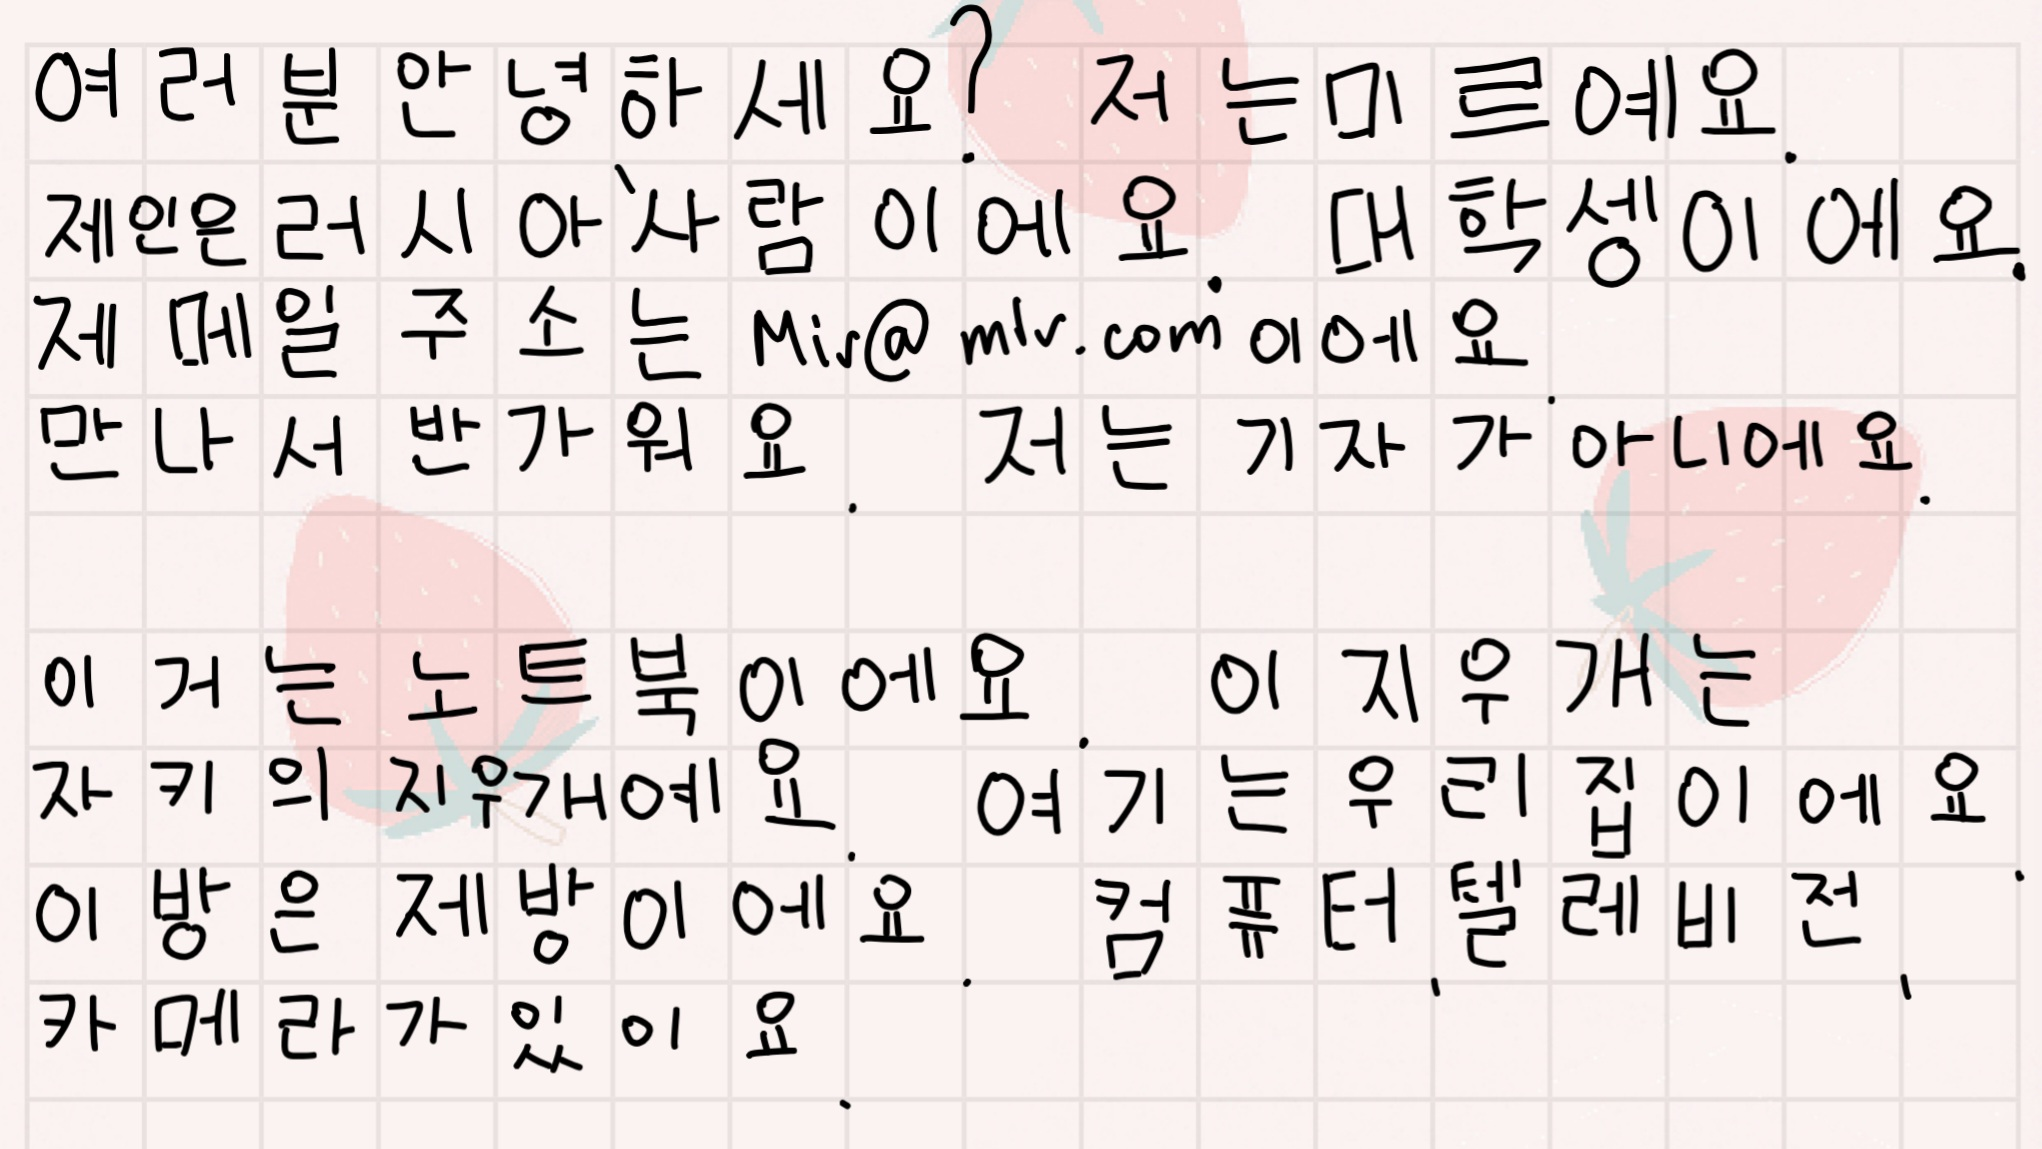 여러분 안녕하세요? 저는 미르예요.
제인은 러시아 사람이에요. 대학셍이에요.
제 메일 주소는 Mir@mir.com이에요.
만나서 반가워요. 저는 기자가 아니에요.
이거는 노트북이에요. 이 지우개는
자키의 지우개예요. 여기는 우리 집이에요.
이 방은 제 방이에요. 컴퓨터, 텔레비전,
카메라가 있이요.